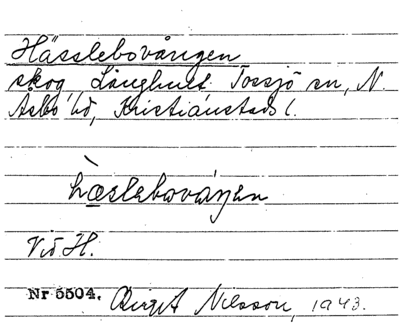 Hässlebovången
skog, Långhult Tossjö sn, N.
Åsbo hd, Kristianstads l.
hæslebovåŋen
Vid H.
Nr 5504. Birgit Nilsson, 1943.